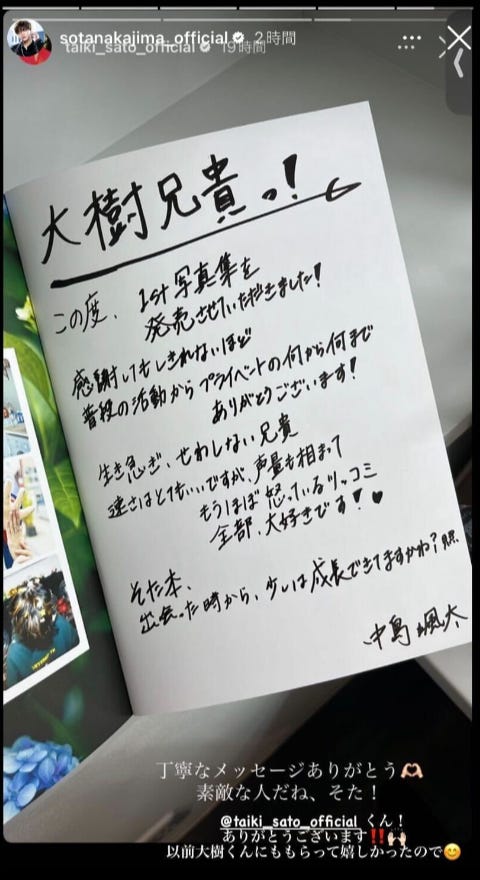 sotanakajima_official 2時間
taiki_sato_official 19時間
大樹兄貴っ!
この度、1st写真集を
発売させていただきました!
感謝してもしきれないほど
普段の活動からプライベートの何から何まで
ありがとうございます!
生き急ぎ、せわしない兄貴
速さはとてもいいですが、声量も相まって
もうほぼ怒っているツッコミ
全部、大好きです!♥
そた本、
出会った時から、少しは成長できてますかね?
中島颯太
丁寧なメッセージありがとう🫶🏻
素敵な人だね、そた!
@taiki_sato_official くん!
ありがとうございます‼️🙌🏻
以前大樹くんにももらって嬉しかったので😊